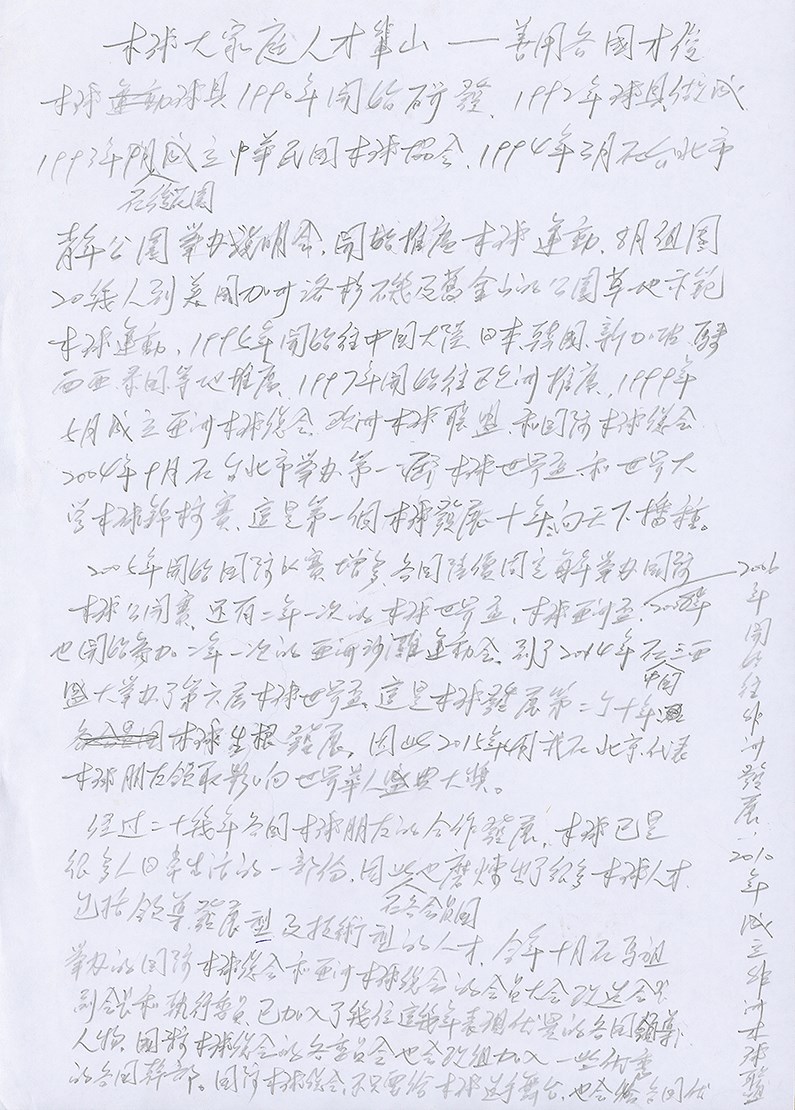 木球大家庭人才輩山——善用各國才俊
木球運動球具1990年開始研發、1992年球具做成
1993年成立中華民國木球協會、1994年3月在台北市
青年公園舉办説明会、開始推廣木球運動、8月組團
20幾人到美国加州洛杉磯及舊金山的公園草地示範
木球運動、1995年開始往中国大陸、日本、韓国、新加坡、馬來
西亚、泰国等地推廣、1997年開始往欧洲推廣、1999年
5月成立亚洲木球總会、欧洲木球联盟、和国际木球總会
2004年9月在台北市舉办第一屆木球世界盃和世界大
学木球錦標賽、這是第一個木球發展十年向天下播種。
2005年開始国际比賽增多、各国陸續固定每年舉办国际
木球公開賽、还有二年一次的木球世界盃、木球亚洲盃、2008年
也開始参加二年一次的亚洲沙灘運動会、到了2014年在三亚
中国
盛大舉办了第六屆木球世界盃、這是木球發展第二个十年
木球生根發展、因此2015年4月我在北京代表
木球朋友領取影响世界華人盛典大獎。
经过二十幾年各国木球朋友的合作發展、木球已是
很多人日常生活的一部份、因此也磨煉出了很多木球人才、
在各会員国
包括領導、發展型及技術型的人才、今年十月在
舉办的国际木球總会和亚洲木球總会的会員大会改选会長
副会長和執行委員、已加入了幾位這幾年表現优異的各国領導
人物、国际木球總会的各委員会也会改組加入一些
的各国幹部。国际木球總会、不只要給木球选手舞台、也会給各国优
2006年開始往非洲發展、2010年成立非洲木球聯盟